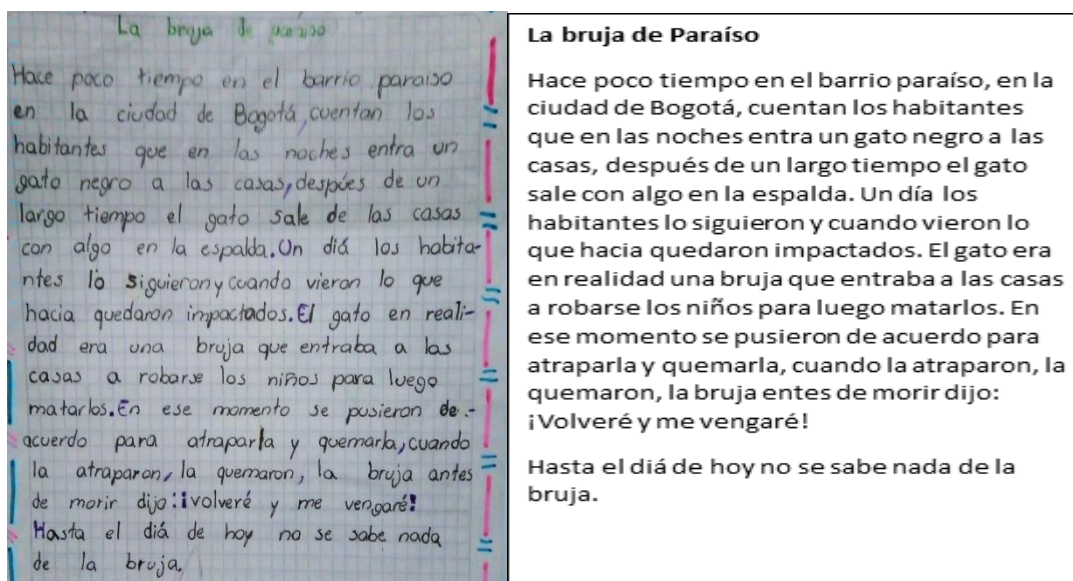 La bruja de paraiso
Hace poco tiempo en el barrio paraiso
en la ciudad de Bogotá, cuentan los
habitantes que en las noches entra un
gato negro a las casas, despúes de un
largo tiempo el gato sale de las casas
con algo en la espalda. Un diá los habita-
ntes lo siguieron y cuando vieron lo que
hacia quedaron impactados. El gato en reali-
dad era una bruja que entraba a las
casas a robarse los niños para luego
matarlos. En ese momento se pusieron de.-
acuerdo para atraparla y quemarla, cuando
la atraparon, la quemaron, la bruja antes
de morir dijo: ¡volveré y me vengaré!
Hasta el diá de hoy no se sabe nada
de la bruja.
La bruja de Paraíso
Hace poco tiempo en el barrio paraíso, en la
ciudad de Bogotá, cuentan los habitantes
que en las noches entra un gato negro a las
casas, después de un largo tiempo el gato
sale con algo en la espalda. Un día los
habitantes lo siguieron y cuando vieron lo
que hacia quedaron impactados. El gato era
en realidad una bruja que entraba a las casas
a robarse los niños para luego matarlos. En
ese momento se pusieron de acuerdo para
atraparla y quemarla, cuando la atraparon, la
quemaron, la bruja entes de morir dijo:
¡Volveré y me vengaré!
Hasta el diá de hoy no se sabe nada de la
bruja.